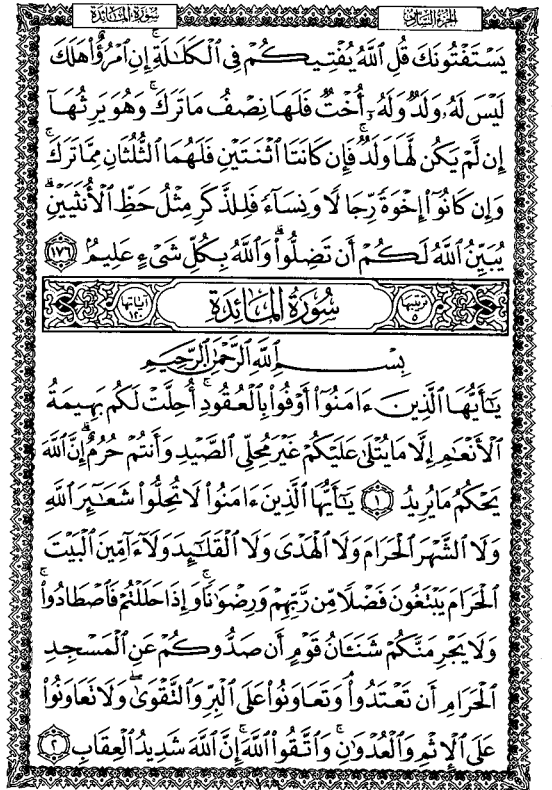 الجزء السادس سورة المائدة
يَسْتَفْتُونَكَ قُلِ ٱللَّهُ يُفْتِيكُمْ فِي ٱلْكَلَٰلَةِ ۚ إِنِ ٱمْرُؤٌا۟ هَلَكَ
لَيْسَ لَهُۥ وَلَدٌ وَلَهُۥٓ أُخْتٌ فَلَهَا نِصْفُ مَا تَرَكَ ۚ وَهُوَ يَرِثُهَآ
إِن لَّمْ يَكُن لَّهَا وَلَدٌ ۚ فَإِن كَانَتَا ٱثْنَتَيْنِ فَلَهُمَا ٱلثُّلُثَانِ مِمَّا تَرَكَ ۚ
وَإِن كَانُوٓا۟ إِخْوَةً رِّجَالًا وَنِسَآءً فَلِلذَّكَرِ مِثْلُ حَظِّ ٱلْأُنثَيَيْنِ ۗ
يُبَيِّنُ ٱللَّهُ لَكُمْ أَن تَضِلُّوا۟ ۗ وَٱللَّهُ بِكُلِّ شَىْءٍ عَلِيمٌۢ ١٧٦
ترتيبها ٥ سُورَةُ المَائِدَةِ آياتها ١٢٠
بِسْمِ ٱللَّهِ ٱلرَّحْمَٰنِ ٱلرَّحِيمِ
يَٰٓأَيُّهَا ٱلَّذِينَ ءَامَنُوٓا۟ أَوْفُوا۟ بِٱلْعُقُودِ ۚ أُحِلَّتْ لَكُم بَهِيمَةُ
ٱلْأَنْعَٰمِ إِلَّا مَا يُتْلَىٰ عَلَيْكُمْ غَيْرَ مُحِلِّى ٱلصَّيْدِ وَأَنتُمْ حُرُمٌ ۗ إِنَّ ٱللَّهَ
يَحْكُمُ مَا يُرِيدُ ١ يَٰٓأَيُّهَا ٱلَّذِينَ ءَامَنُوا۟ لَا تُحِلُّوا۟ شَعَٰٓئِرَ ٱللَّهِ
وَلَا ٱلشَّهْرَ ٱلْحَرَامَ وَلَا ٱلْهَدْىَ وَلَا ٱلْقَلَٰٓئِدَ وَلَآ ءَآمِّينَ ٱلْبَيْتَ
ٱلْحَرَامَ يَبْتَغُونَ فَضْلًا مِّن رَّبِّهِمْ وَرِضْوَٰنًا ۚ وَإِذَا حَلَلْتُمْ فَٱصْطَادُوا۟ ۚ
وَلَا يَجْرِمَنَّكُمْ شَنَـَٔانُ قَوْمٍ أَن صَدُّوكُمْ عَنِ ٱلْمَسْجِدِ
ٱلْحَرَامِ أَن تَعْتَدُوا۟ ۘ وَتَعَاوَنُوا۟ عَلَى ٱلْبِرِّ وَٱلتَّقْوَىٰ ۖ وَلَا تَعَاوَنُوا۟
عَلَى ٱلْإِثْمِ وَٱلْعُدْوَٰنِ ۚ وَٱتَّقُوا۟ ٱللَّهَ ۖ إِنَّ ٱللَّهَ شَدِيدُ ٱلْعِقَابِ ٢